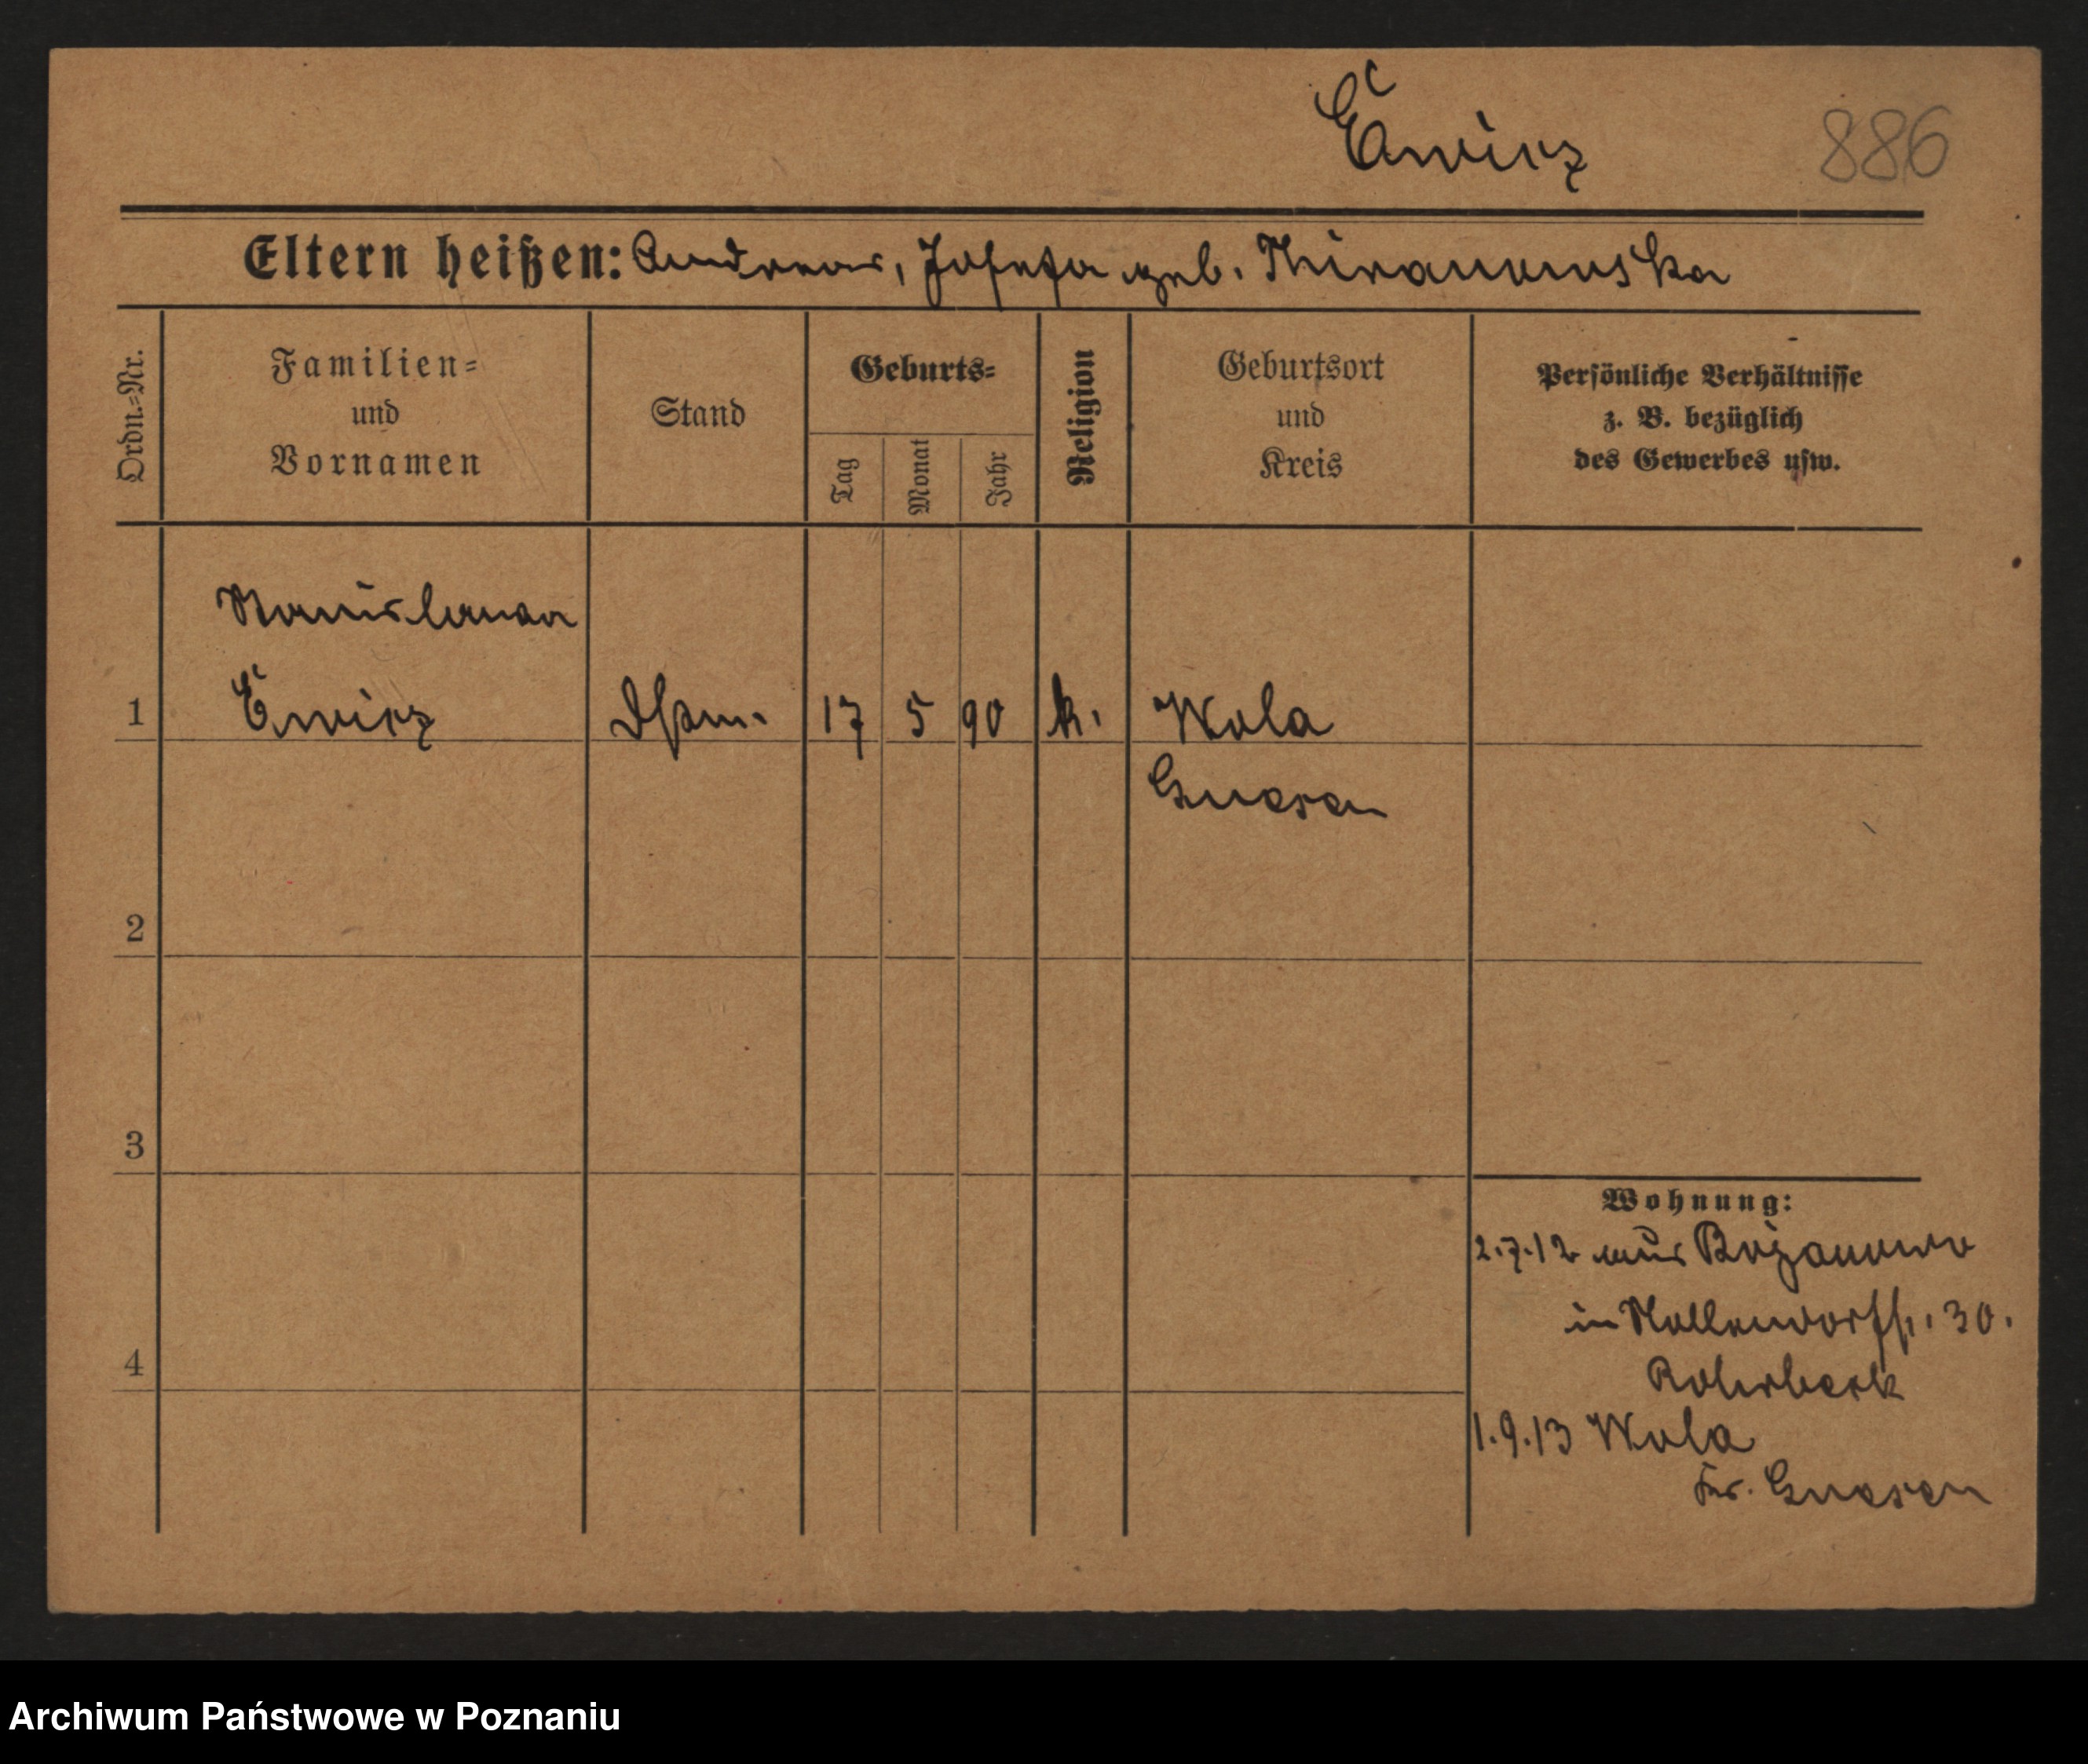 Ćwirz
886
Eltern heißen: Andreas, Josefa geb.
Ordn.=Nr.
Familien=
und
Vornamen
Stand
Geburts=
Tag
Monat
Jahr
Religion
Geburtsort
und
Kreis
Persönliche Verhältnisse
z. B. bezüglich
des Gewerbes usw.
Stanislawa
1 Ćwirz Dstm. 17 5 90 k. Wola
Gnesen
2
3
4
Wohnung:
2.7.12 aus Bojanowo
in Mollendorfstr. 30.
Rohrbeck
1.9.13 Wola
Kr. Gnesen
Archiwum Państwowe w Poznaniu